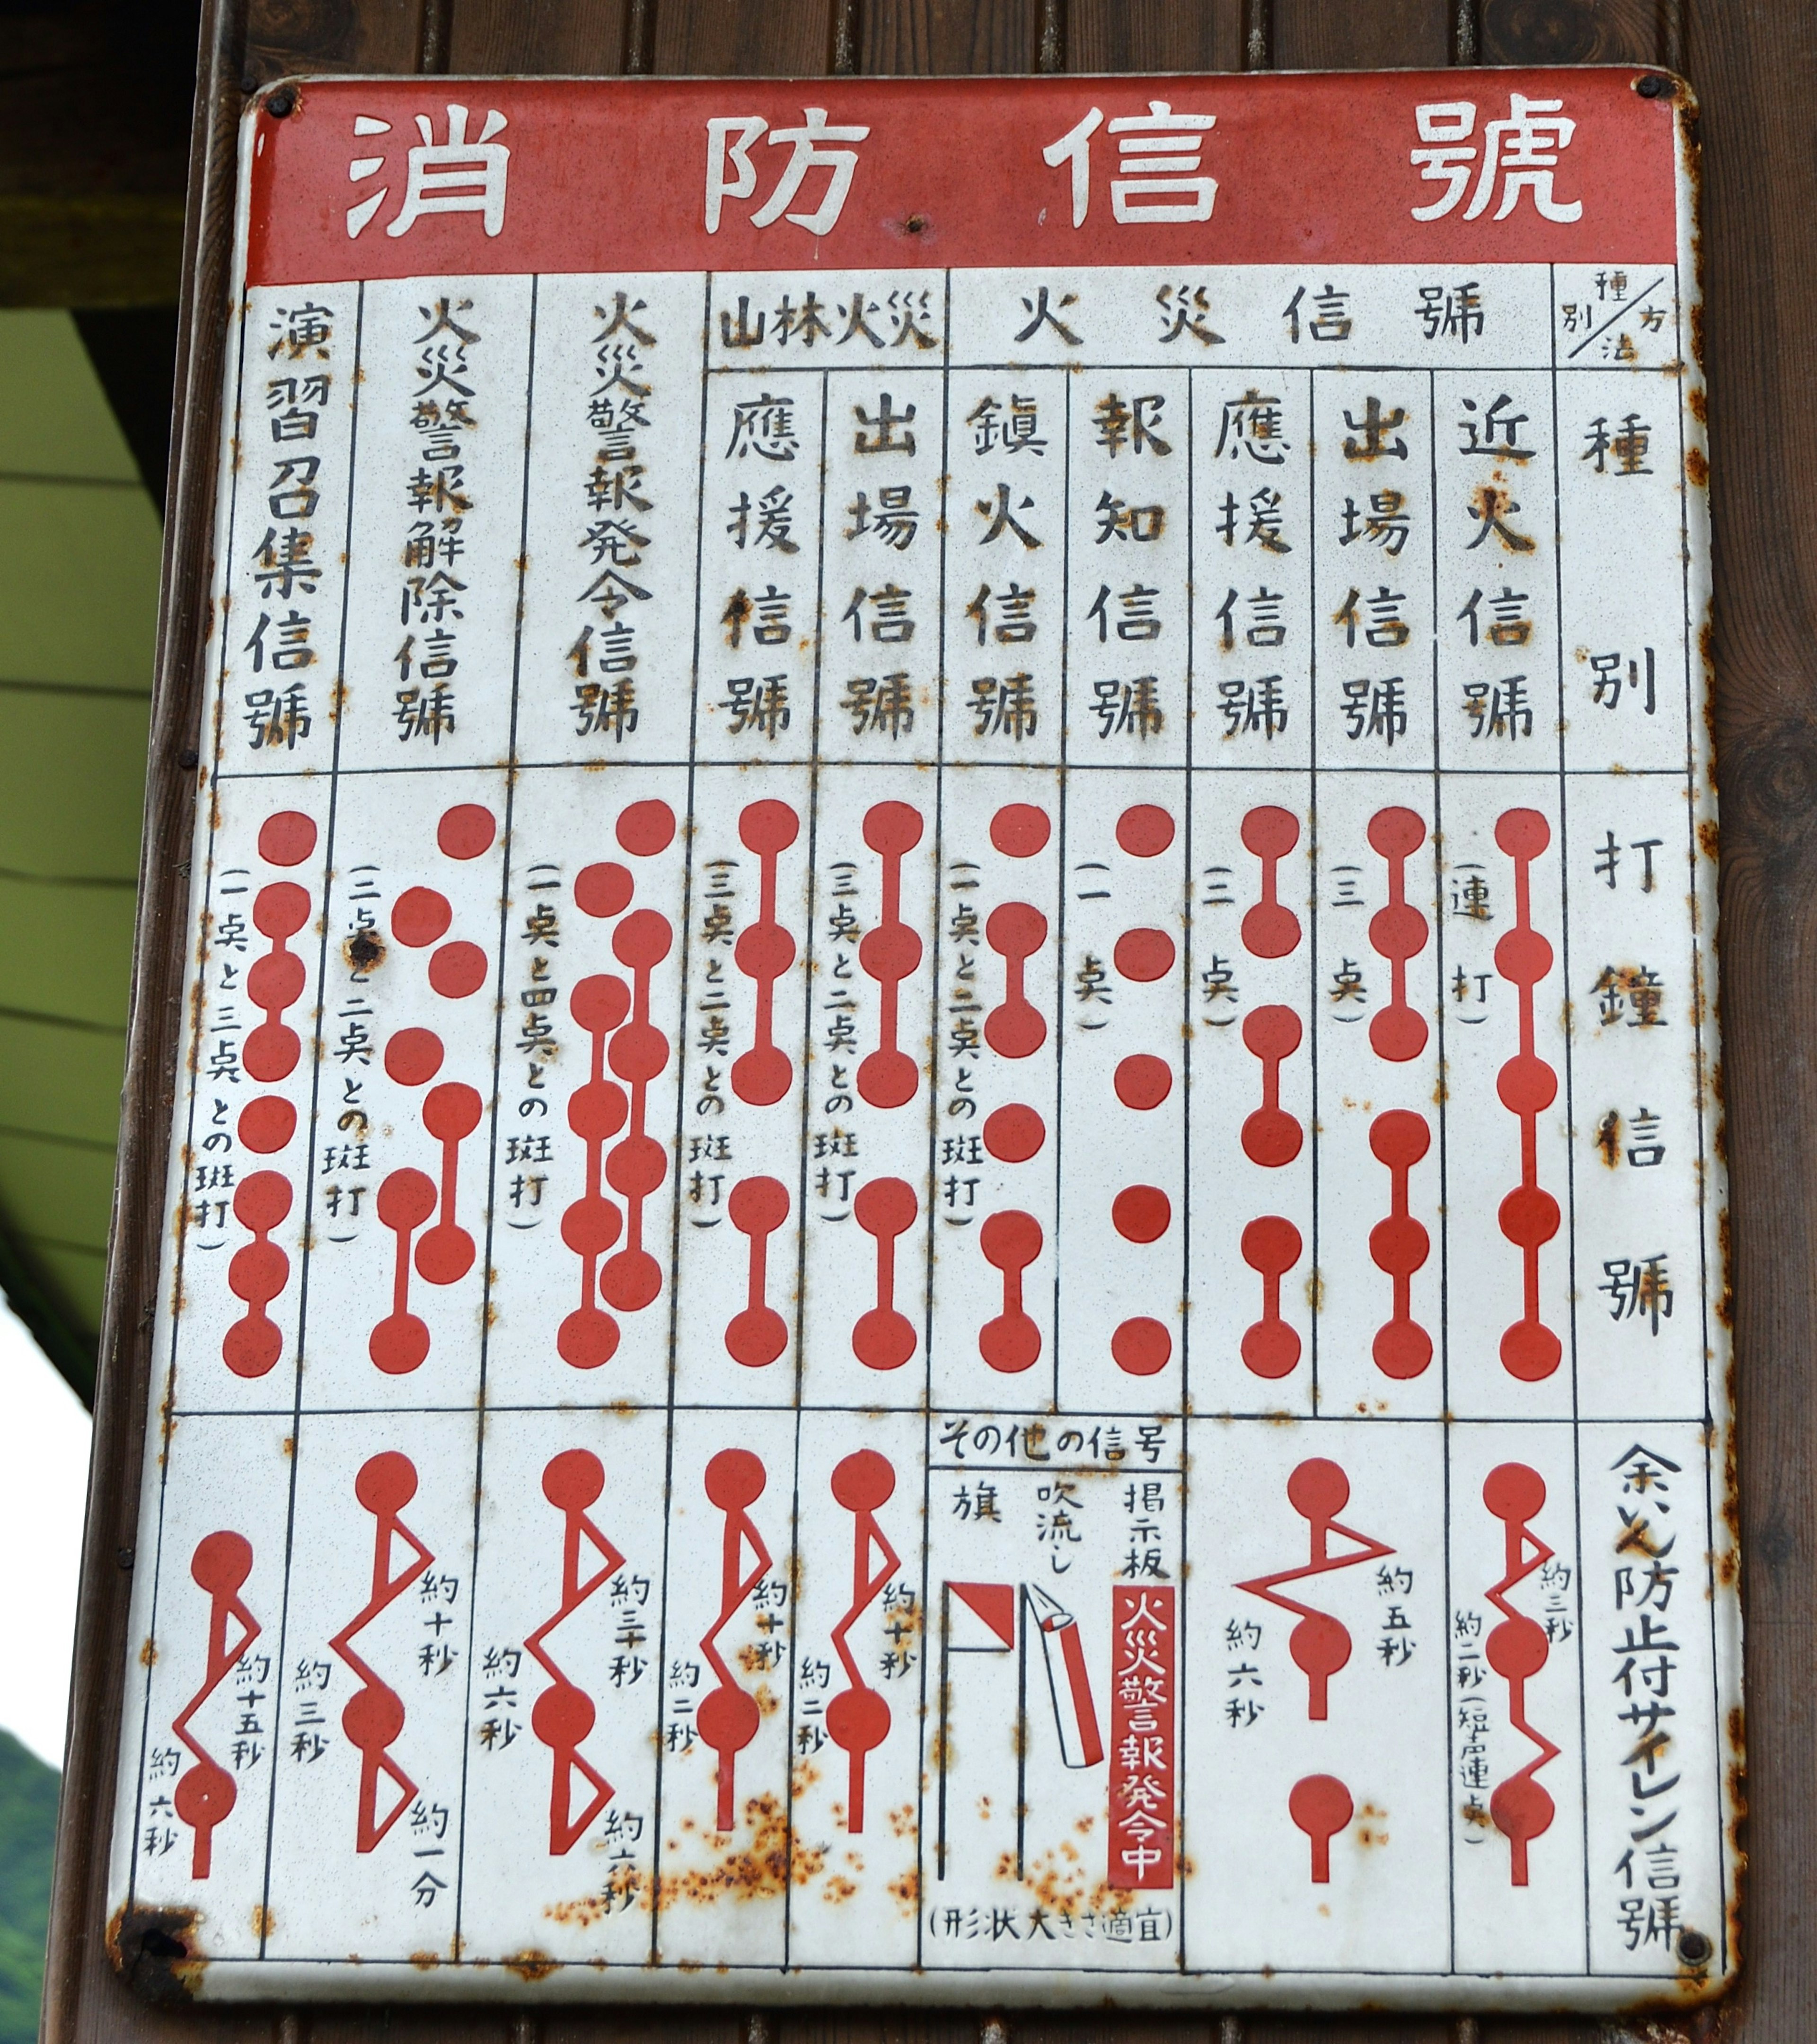 消防信號
種別／方法
火災信號
山林火災
種別
近火信號
出場信號
應援信號
報知信號
鎭火信號
出場信號
應援信號
火災警報発令信號
火災警報解除信號
演習召集信號
打鐘信號
(連打)
(三点)
(二点)
(一点)
(一点と二点との斑打)
(三点と二点との斑打)
(三点と二点との斑打)
(一点と四点との斑打)
(二点と二点との斑打)
(一点と三点との斑打)
余いん防止付サイレン信號
約三秒
約二秒(短声連点)
約五秒
約六秒
その他の信号
掲示板
吹流し
旗
火災警報発令中
(形状大きさ適宜)
約十秒
約二秒
約十秒
約二秒
約三十秒
約六秒
約六秒
約十秒
約三秒
約一分
約十五秒
約六秒